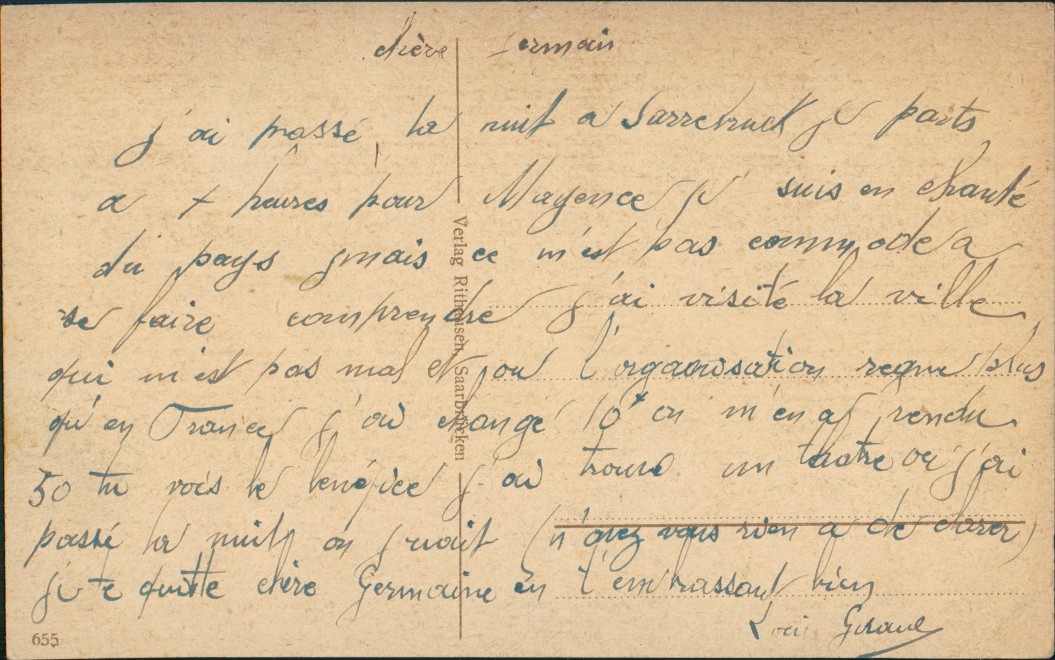 chère Germain
j'ai passé la nuit a Sarrebruck je parts
a 7 heures pour Mayence je suis en chanté
du pays mais ce n'est pas commode a
se faire comprendre j'ai visité la ville
qui n'est pas mal et ou l'organisation regne plus
qu'en France j'ai changé 10f on m'en a rendu
50 tu vois le benéfice j'ai trouvé un theatre ou j'ai
passé la nuit on (n'avez vous rien a de clarer)
je te quitte chère Germaine en t'embrassant bien
Louis
Verlag Saarbrücken
655